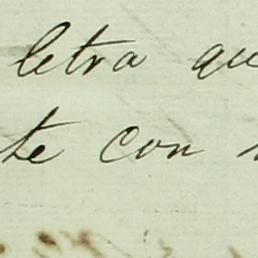 letra qu
te con